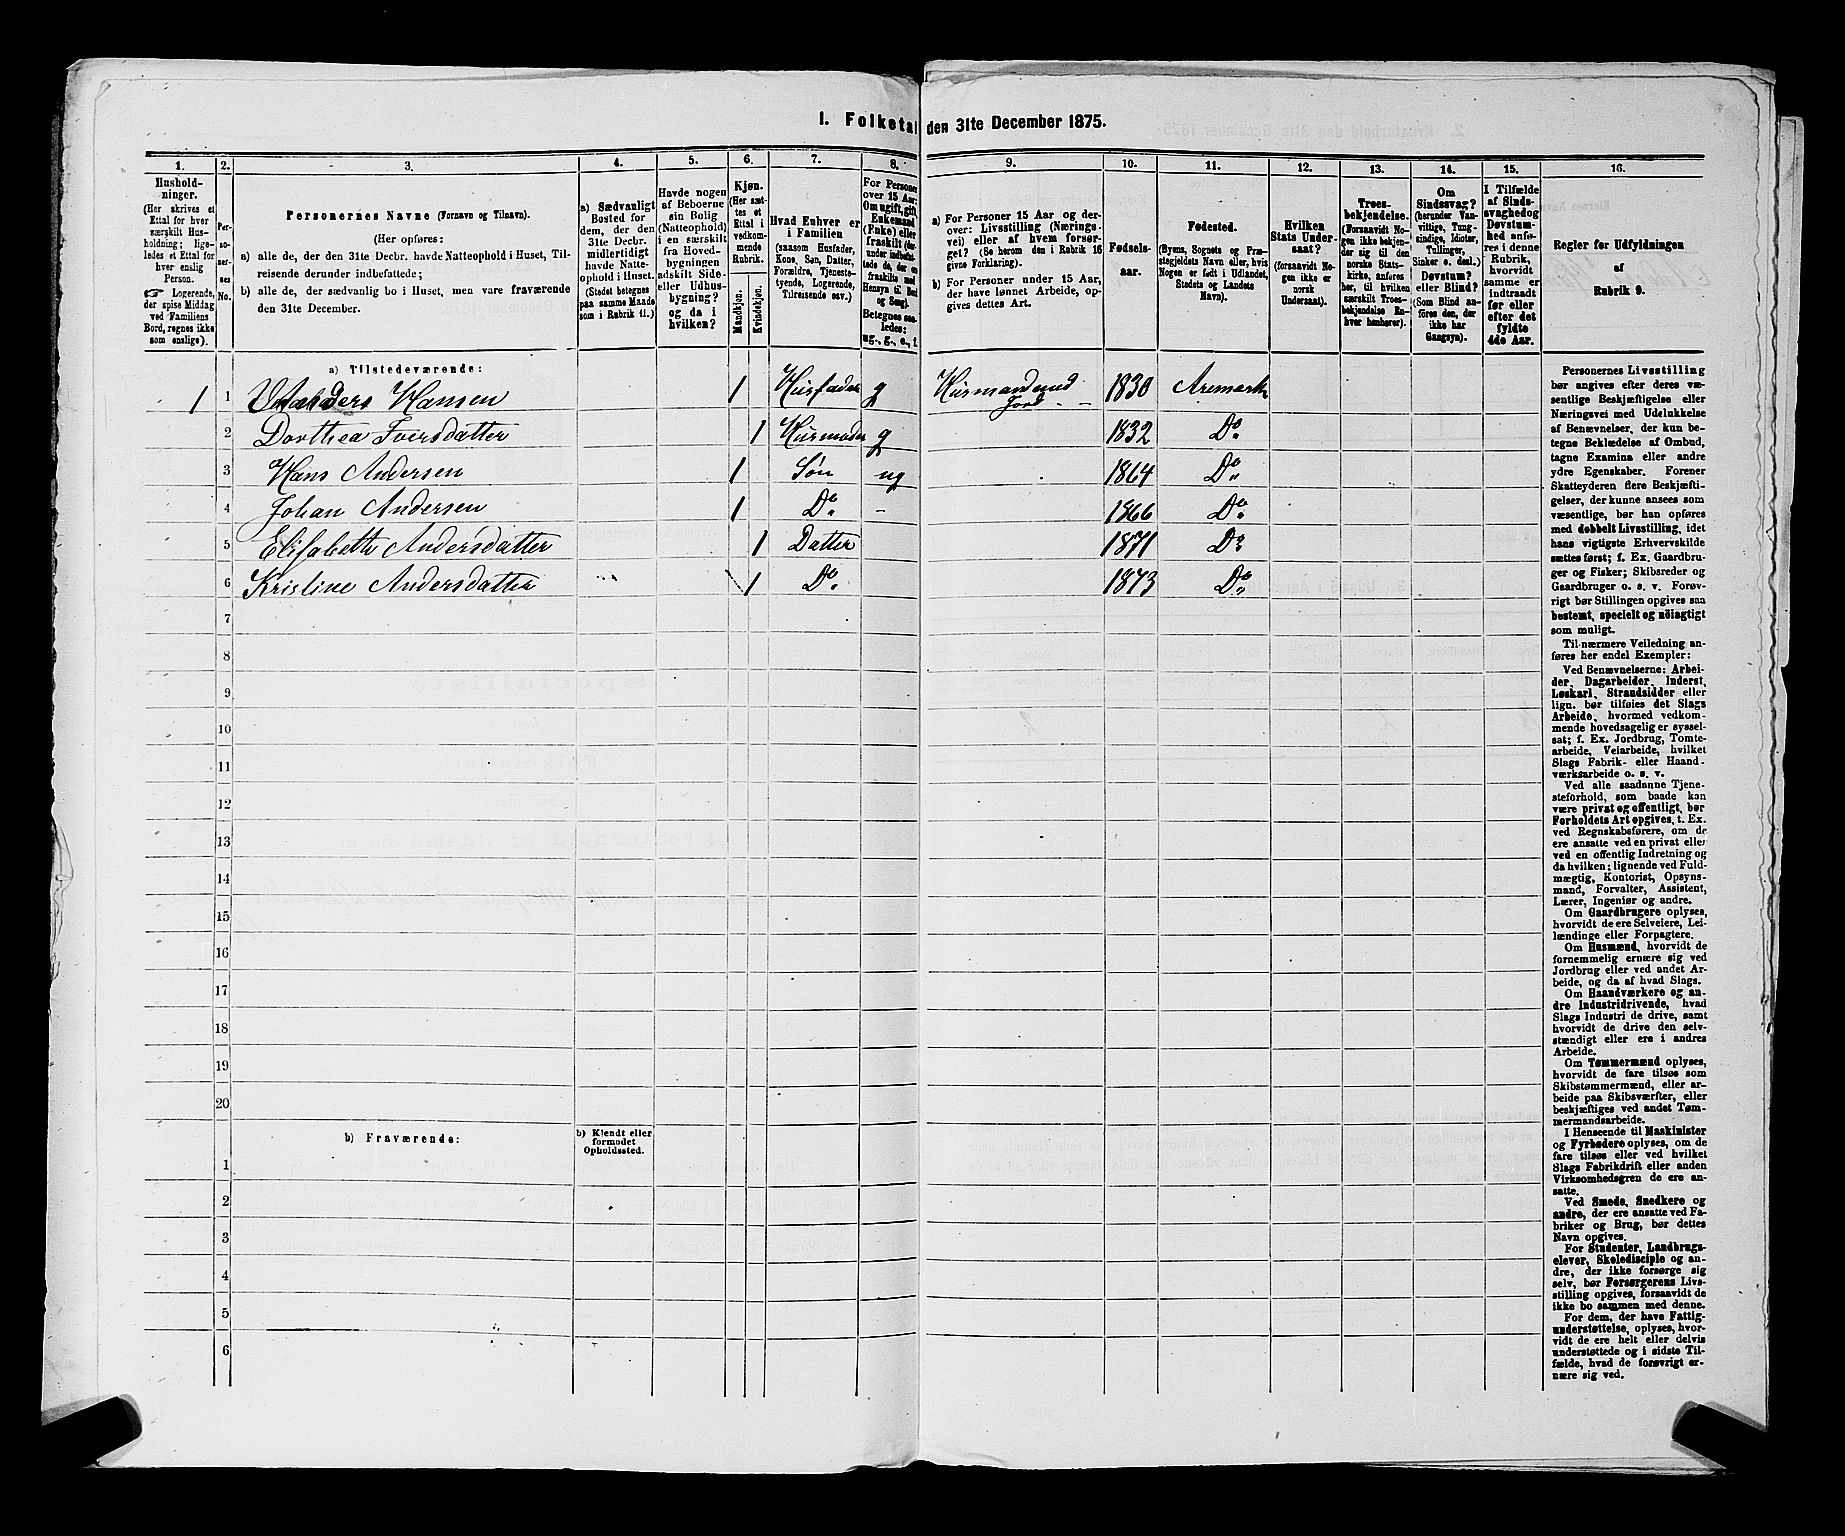 1. Folketal den 31te December 1875.
1. 2. 3. 4. 5. 6. 7. 8. 9. 10. 11. 12. 13. 14. 15. 16.
Hushold-
ninger.
(Her skrives et
Ettal for hver
særskilt Hus-
holdning; lige-
ledes et Ettal for
hver enslig
Person.
☞ Logerende,
der spise Middag
ved Familiens
Bord, regnes ikke
som enslige).
Per-
so-
ner-
nes
No.
Personernes Navne (Fornavn og Tilnavn).
(Her opføres:
a) alle de, der den 31te Decbr. havde Natteophold i Huset, Til-
reisende derunder indbefattede;
b) alle de, der sædvanlig bo i Huset, men vare fraværende
den 31te December.
a) Sædvanligt
Bosted for
dem, der den
31te Decbr.
midlertidigt
havde Natte-
ophold i Huset.
(Stedet betegnes
paa samme Maade
som i Rubrik 11.)
Havde nogen
af Beboerne
sin Bolig
(Natteophold)
i en særskilt
fra Hoved-
bygningen
adskilt Side-
eller Udhus-
bygning?
og da i
hvilken?
Kjøn.
(Her sæt-
tes et
Ettal i
vedkom-
mende
Rubrik.
Mandkjøn.
Kvindekjøn.
Hvad Enhver er
i Familien
(saasom Husfader,
Kone, Søn, Datter,
Forældre, Tjeneste-
tyende, Logerende,
Tilreisende osv.)
For Personer
over 15 Aar:
Om ugift, gift,
Enkemand
(Enke) eller
fraskilt (der-
under indbefat-
tede de, der ere
fraskilte med
Hensyn til Bord
og Seng).
Betegnes saa-
ledes:
ug., g., e., f.
a) For Personer 15 Aar og der-
over: Livsstilling (Nærings-
vei) eller af hvem forsør-
get? (Se herom den i Rubrik 16
givne Forklaring).
b) For Personer under 15 Aar,
der have lønnet Arbeide, op-
gives dettes Art.
Fødsels-
aar.
Fødested.
(Byens, Sognets og Præ-
stegjeldets Navn eller, hvis
Nogen er født i Udlandet,
Stedets og Landets
Navn).
Hvilken
Stats Under-
saat?
(forsaavidt No-
gen ikke er
norsk
Undersaat).
Troes-
bekjendelse.
(Forsaavidt No-
gen ikke bekjen-
der sig til den
norske Stats-
kirke, anføres
her, til hvilken
særskilt Troes-
bekjendelse En-
hver henhører).
Om
Sindssvag?
(herunder Van-
vittige, Tung-
sindige, Idioter,
Tullinger,
Sinker o. desl.)
Døvstum?
eller Blind?
(Som Blind an-
føres den, der
ikke har
Gangsyn).
I Tilfælde
af Sinds-
svaghed og
Døvstum-
hed anfø-
res i denne
Rubrik,
hvorvidt
samme er
indtraadt
før eller
efter det
fyldte
4de Aar.
Regler for Udfyldningen
af
Rubrik 9.
a) Tilstedeværende:
1 1 Anders Hansen 1 Husfader g Husmand med Jord 1830 Aremark
2 Dorthea Iversdatter 1 Husmoder g 1832 Do.
3 Hans Andersen 1 Søn ug 1864 Do.
4 Johan Andersen 1 Do. - 1866 Do.
5 Elisabeth Andersdatter 1 Datter 1871 Do.
6 Kristine Andersdatter 1 Do. 1873 Do.
7
8
9
10
11
12
13
14
15
16
17
18
19
20
b) Fraværende:
b) Kjendt eller
formodet
Opholdssted.
1
2
3
4
5
6
Personernes Livsstilling
bør angives efter deres væ-
sentlige Beskjæftigelse eller
Næringsvei med Udelukkelse
af Benævnelser, der kun be-
tegne Beklædelse af Ombud,
tagne Examina eller andre
ydre Egenskaber. Forener
Skatteyderen flere Beskjæfti-
gelser, der kunne ansees som
væsentlige, bør han opføres
med dobbelt Livsstilling, idet
hans vigtigste Erhvervskilde
sættes først; f. Ex. Gaardbru-
ger og Fisker; Skibsreder og
Gaardbruger o. s. v. Forøv-
rigt bør Stillingen opgives saa
bestemt, specielt og nöiagtigt
som muligt.
Til nærmere Veiledning an-
føres her endel Exempler:
Ved Benævnelserne: Arbei-
der, Dagarbeider, Inderst,
Løskarl, Strandsidder eller
lign. bør tilføies det Slags
Arbeide, hvormed vedkom-
mende hovedsagelig er syssel-
sat; f. Ex. Jordbrug, Tomte-
arbeide, Veiarbeide, hvilket
Slags Fabrik- eller Haand-
værksarbeide o. s. v.
Ved alle saadanne Tjene-
steforhold, som baade kan
være privat og offentligt, bør
Forholdets Art opgives, t. Ex.
ved Regnskabsførere, om de
ere ansatte ved en privat eller
ved en offentlig Indretning og
da hvilken; lignende ved Fuld-
mægtig, Kontorist, Opsyns-
mand, Forvalter, Assistent,
Lærer, Ingeniør og andre.
Om Gaardbrugere oplyses,
hvorvidt de ere Selveiere, Lei-
lændinge eller Forpagtere.
Om Husmænd, hvorvidt de
fornemmelig ernære sig ved
Jordbrug eller ved andet Ar-
beide, og da af hvad Slags.
Om Haandværkere og an-
dre Industridrivende, hvad
Slags Industri de drive, samt
hvorvidt de drive den selv-
stændigt eller ere i andres
Arbeide.
Om Tømmermænd oplyses,
hvorvidt de fare tilsøs som
Skibstømmermænd, eller ar-
beide paa Skibsværfter, eller
beskjæftiges ved andet Tøm-
mermandsarbeide.
I Henseende til Maskinister
og Fyrbødere oplyses, om de
fare tilsøs eller ved hvilket
Slags Fabrikdrift eller anden
Virksomhedsgren de ere an-
satte.
Ved Smede, Snedkere og
andre, der ere ansatte ved Fa-
briker og Brug, bør dettes
Navn opgives.
For Studenter, Landbrugs-
elever, Skoledisciple og an-
dre, der ikke forsørge sig
selv, bør Forsørgerens Livs-
stilling opgives, forsaavidt de
ikke bo sammen med denne.
For dem, der have Fattig-
understøttelse, oplyses, hvor-
vidt de ere helt eller delvis
understøttede og i sidste Til-
fælde, hvad de forøvrigt er-
nære sig ved.